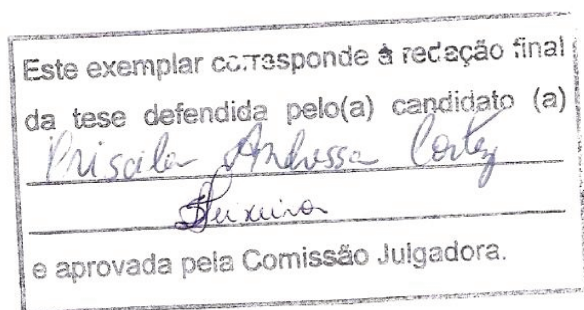 Este exemplar corresponde à redação final
da tese defendida pelo(a) candidato (a)
Priscila Andressa Cortez
Teixeira
e aprovada pela Comissão Julgadora.